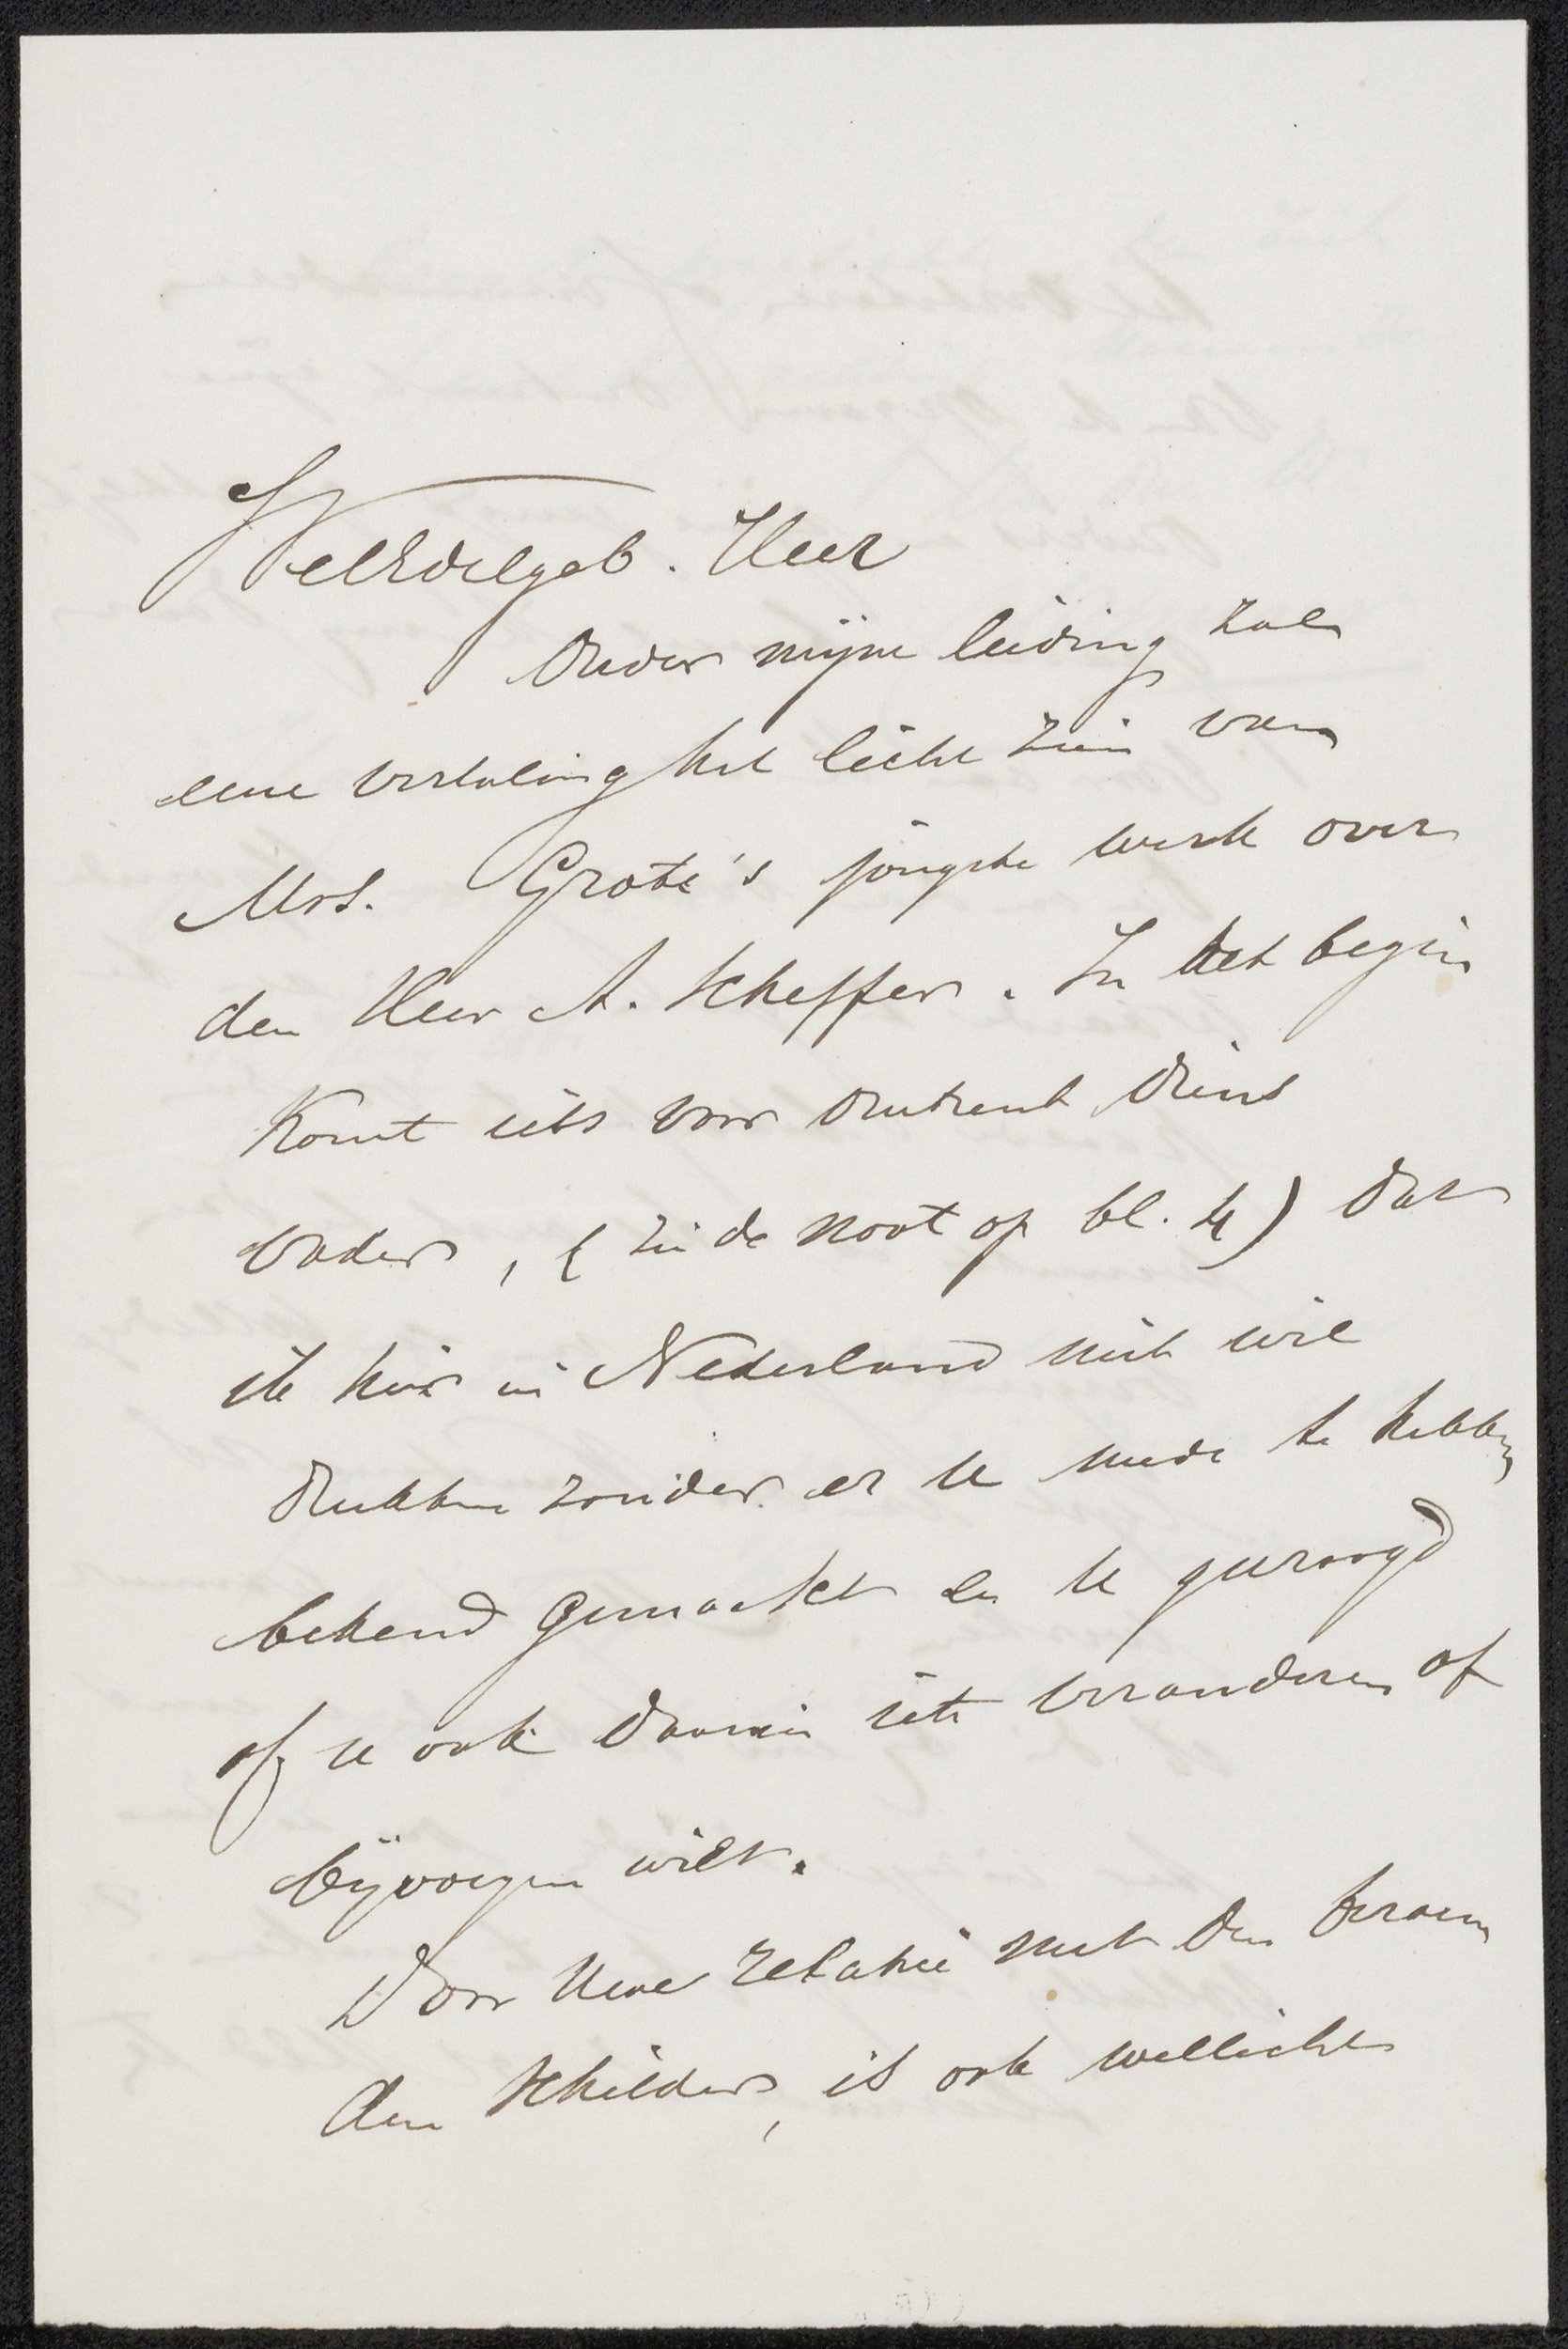 WelEdelgeb. Heer
Onder mijne leiding zal
eene vertaling het licht zien van
Mrs. Grote's jongste werk over
den Heer A. Scheffer. In het begin
komt iets voor omtrent diens
vader, (zie de noot op bl. 4) dat
ik hier in Nederland niet wil
drukken zonder er U mede te hebben
bekend gemaakt en U gevraagd
of U ook daarin iets veranderen of
bijvoegen wilt.
Door Uwe relatie met den beroem
den schilder, is ook wellicht